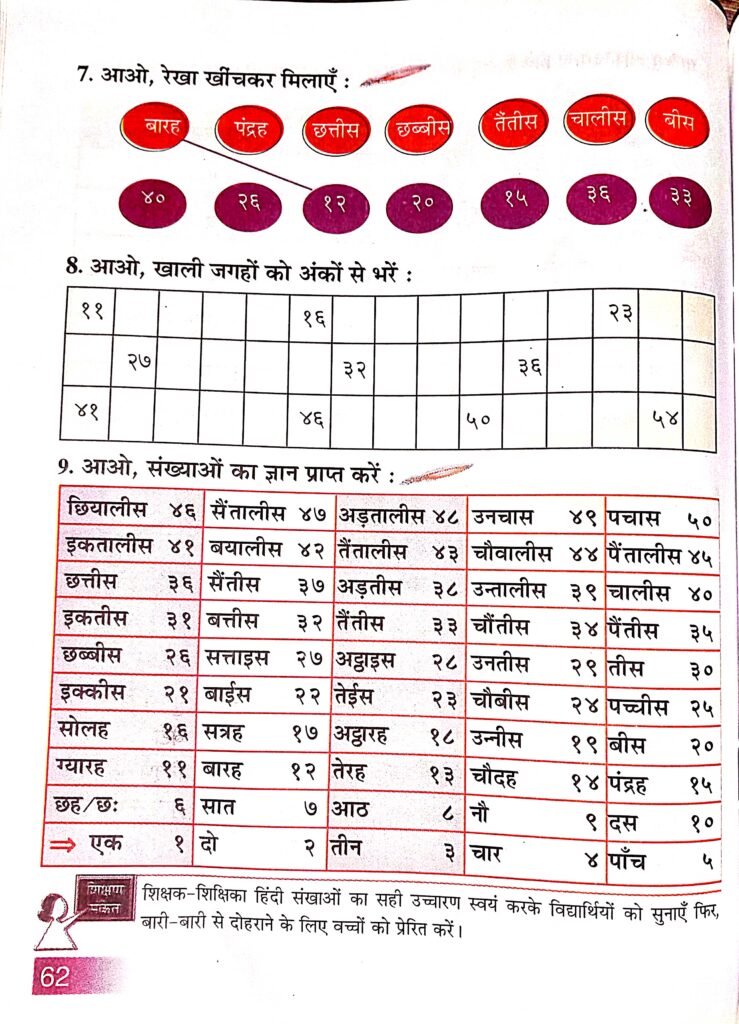 7. आओ, रेखा खींचकर मिलाएँ :
बारह पंद्रह छत्तीस छब्बीस तैंतीस चालीस बीस
४० २६ १२ २० १५ ३६ ३३
8. आओ, खाली जगहों को अंकों से भरें :
११ १६ २३
२७ ३२ ३६
४१ ४६ ५० ५४
9. आओ, संख्याओं का ज्ञान प्राप्त करें :
छियालीस ४६ सैंतालीस ४७ अड़तालीस ४८ उनचास ४९ पचास ५०
इकतालीस ४१ बयालीस ४२ तैंतालीस ४३ चौवालीस ४४ पैंतालीस ४५
छत्तीस ३६ सैंतीस ३७ अड़तीस ३८ उन्तालीस ३९ चालीस ४०
इकतीस ३१ बत्तीस ३२ तैंतीस ३३ चौंतीस ३४ पैंतीस ३५
छब्बीस २६ सत्ताइस २७ अट्ठाइस २८ उनतीस २९ तीस ३०
इक्कीस २१ बाईस २२ तेईस २३ चौबीस २४ पच्चीस २५
सोलह १६ सत्रह १७ अट्ठारह १८ उन्नीस १९ बीस २०
ग्यारह ११ बारह १२ तेरह १३ चौदह १४ पंद्रह १५
छह/छः ६ सात ७ आठ ८ नौ ९ दस १०
⇒ एक १ दो २ तीन ३ चार ४ पाँच ५
शिक्षण
संकेत
शिक्षक-शिक्षिका हिंदी संखाओं का सही उच्चारण स्वयं करके विद्यार्थियों को सुनाएँ फिर,
बारी-बारी से दोहराने के लिए वच्चों को प्रेरित करें।
62